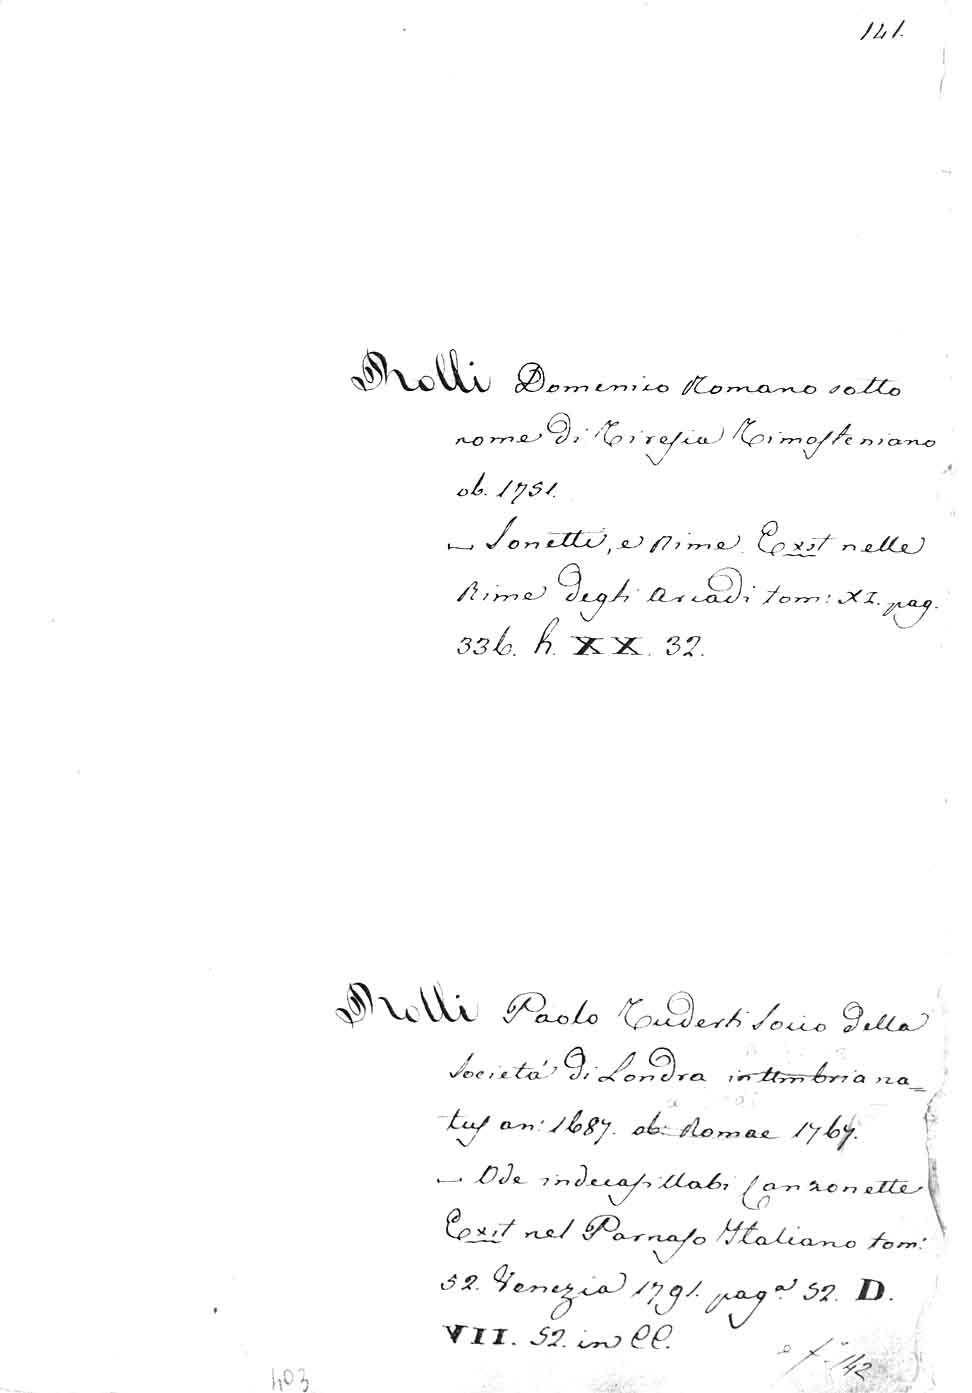 141.
Rolli Domenico Romano sotto
nome di Tiresia Timosteniano
ob. 1751.
— Sonetti, e Rime. Exit nelle
Rime degli Arcadi tom: XI. pag.
336. h. XX. 32.
Rolli Paolo Tuderti Socio della
Società di Londra in Umbria na=
tus an: 1687. ob: Romae 1767.
— Ode indecasillabi Canzonette
Exit nel Parnaso Italiano tom:
52. Venezia 1791. pagª. 52. D.
VII. 52. in CC.
e f. 142
403